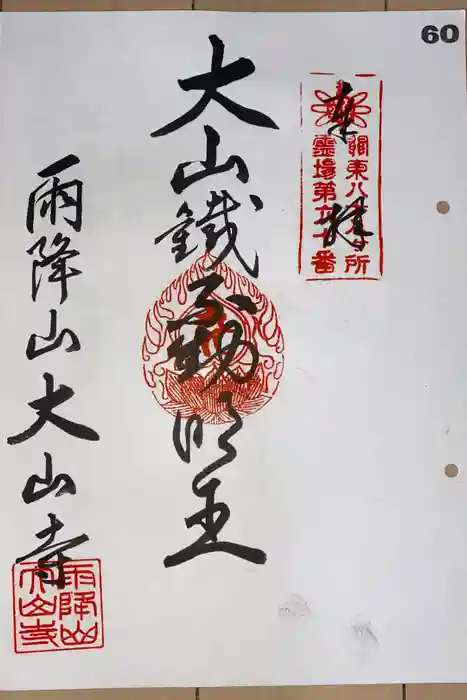 60
奉拝
關東八十八ヶ所
靈場第六十番
大山鐵不動明王
雨降山大山寺
雨降山
大山寺